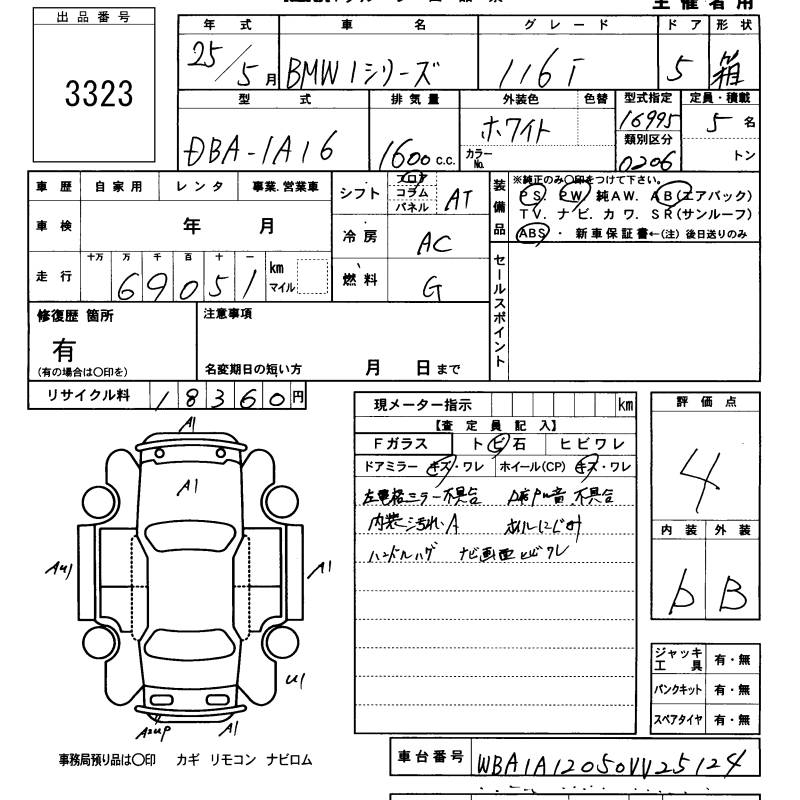 主催者用
出品番号
3323
年式 車名 グレード ドア 形状
25/5月 BMW 1シリーズ 116i 5 箱
型式 排気量 外装色 色替 型式指定 定員・積載
DBA-1A16 1600c.c. ホワイト カラーNo. 16995 5名
類別区分
0206 トン
車歴 自家用 レンタ 事業.営業車
シフト フロア コラム パネル AT
装備品
※純正のみ○印をつけて下さい。
PS. PW. 純AW. AB(エアバック)
TV. ナビ. カワ. SR(サンルーフ)
ABS ・ 新車保証書←(注)後日送りのみ
車検 年 月
冷房 AC
走行 十万 万 千 百 十 一
69051 km マイル
燃料 G
セールスポイント
修復歴 箇所
有
(有の場合は○印を)
注意事項
名変期日の短い方 月 日まで
リサイクル料 18360円
現メーター指示 km
【査定員記入】
Fガラス トビ石 ヒビワレ
ドアミラー キズ・ワレ ホイール(CP) キズ・ワレ
左電格ミラー不具合 不具合
内装汚れ.A
ナビ画面ヒビワレ
評価点
4
内装 外装
b B
ジャッキ 工具 有・無
パンクキット 有・無
スペアタイヤ 有・無
A1
A1
AU1
A1
U1
A2UP
A1
事務局預り品は○印 カギ リモコン ナビロム
車台番号 WBA1A12050VV25124